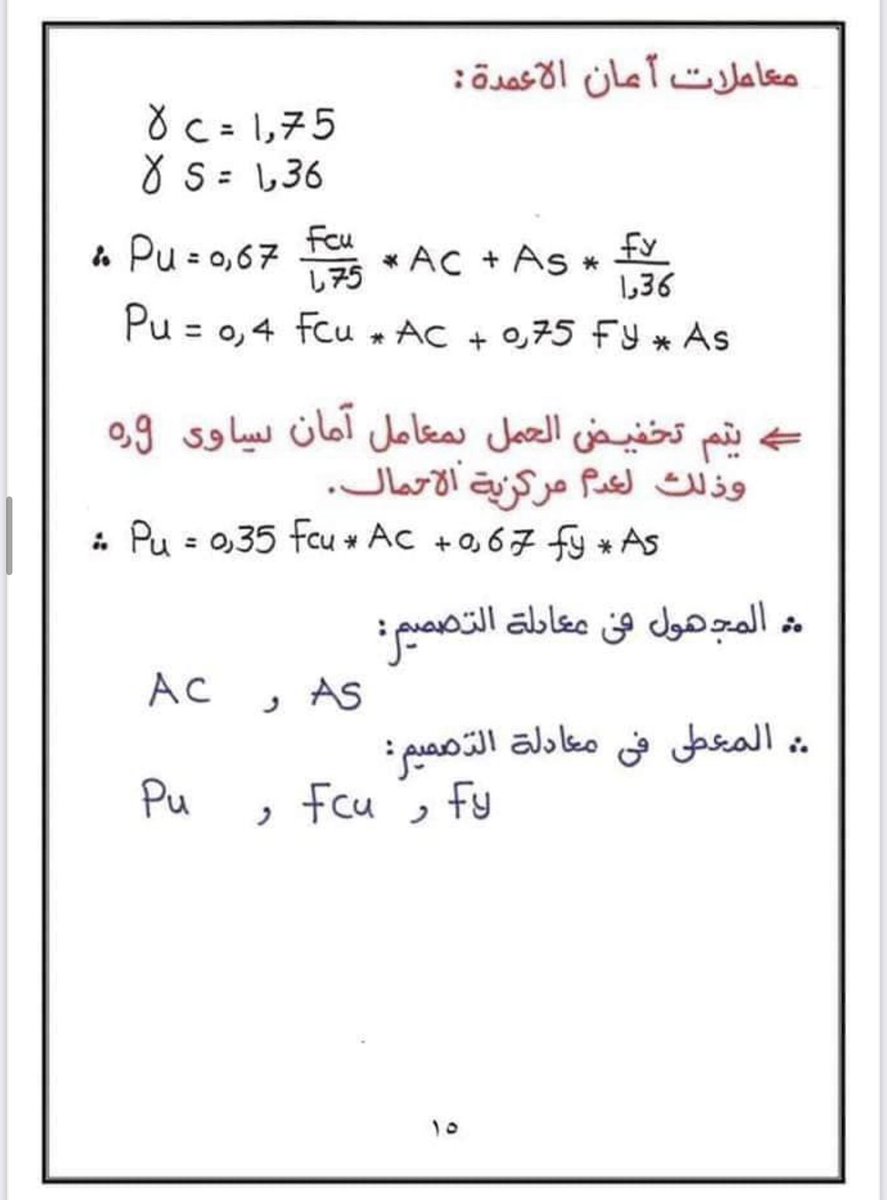 معاملات آمان الاعمدة :
γ c = 1,75
γ s = 1,36
∴ Pu = 0,67 Fcu/1,75 * Ac + As * fy/1,36
Pu = 0,4 Fcu * Ac + 0,75 Fy * As
⇐ يتم تخفيض الحمل بمعامل آمان يساوى 0,9
وذلك لعدم مركزية الاحمال.
∴ Pu = 0,35 Fcu * Ac + 0,67 fy * As
∴ المجهول فى معادلة التصميم :
Ac , As
∴ المعطى فى معادلة التصميم :
Pu , Fcu , Fy
١٥